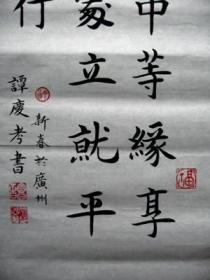 中等緣享
家立就平
行
新春於廣州
譚慶考書